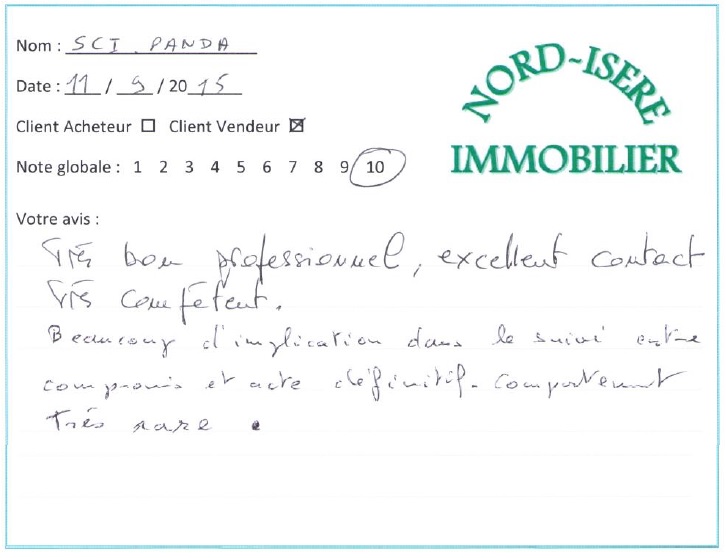 Nom : SCI PANDA
Date : 11 / 9 / 20 15
Client Acheteur ☐ Client Vendeur ☒
Note globale : 1 2 3 4 5 6 7 8 9 10
NORD-ISERE
IMMOBILIER
Votre avis :
Très bon professionnel, excellent contact
Très compétent.
Beaucoup d'implication dans le suivi entre
compromis et acte définitif. Comportement
très rare .